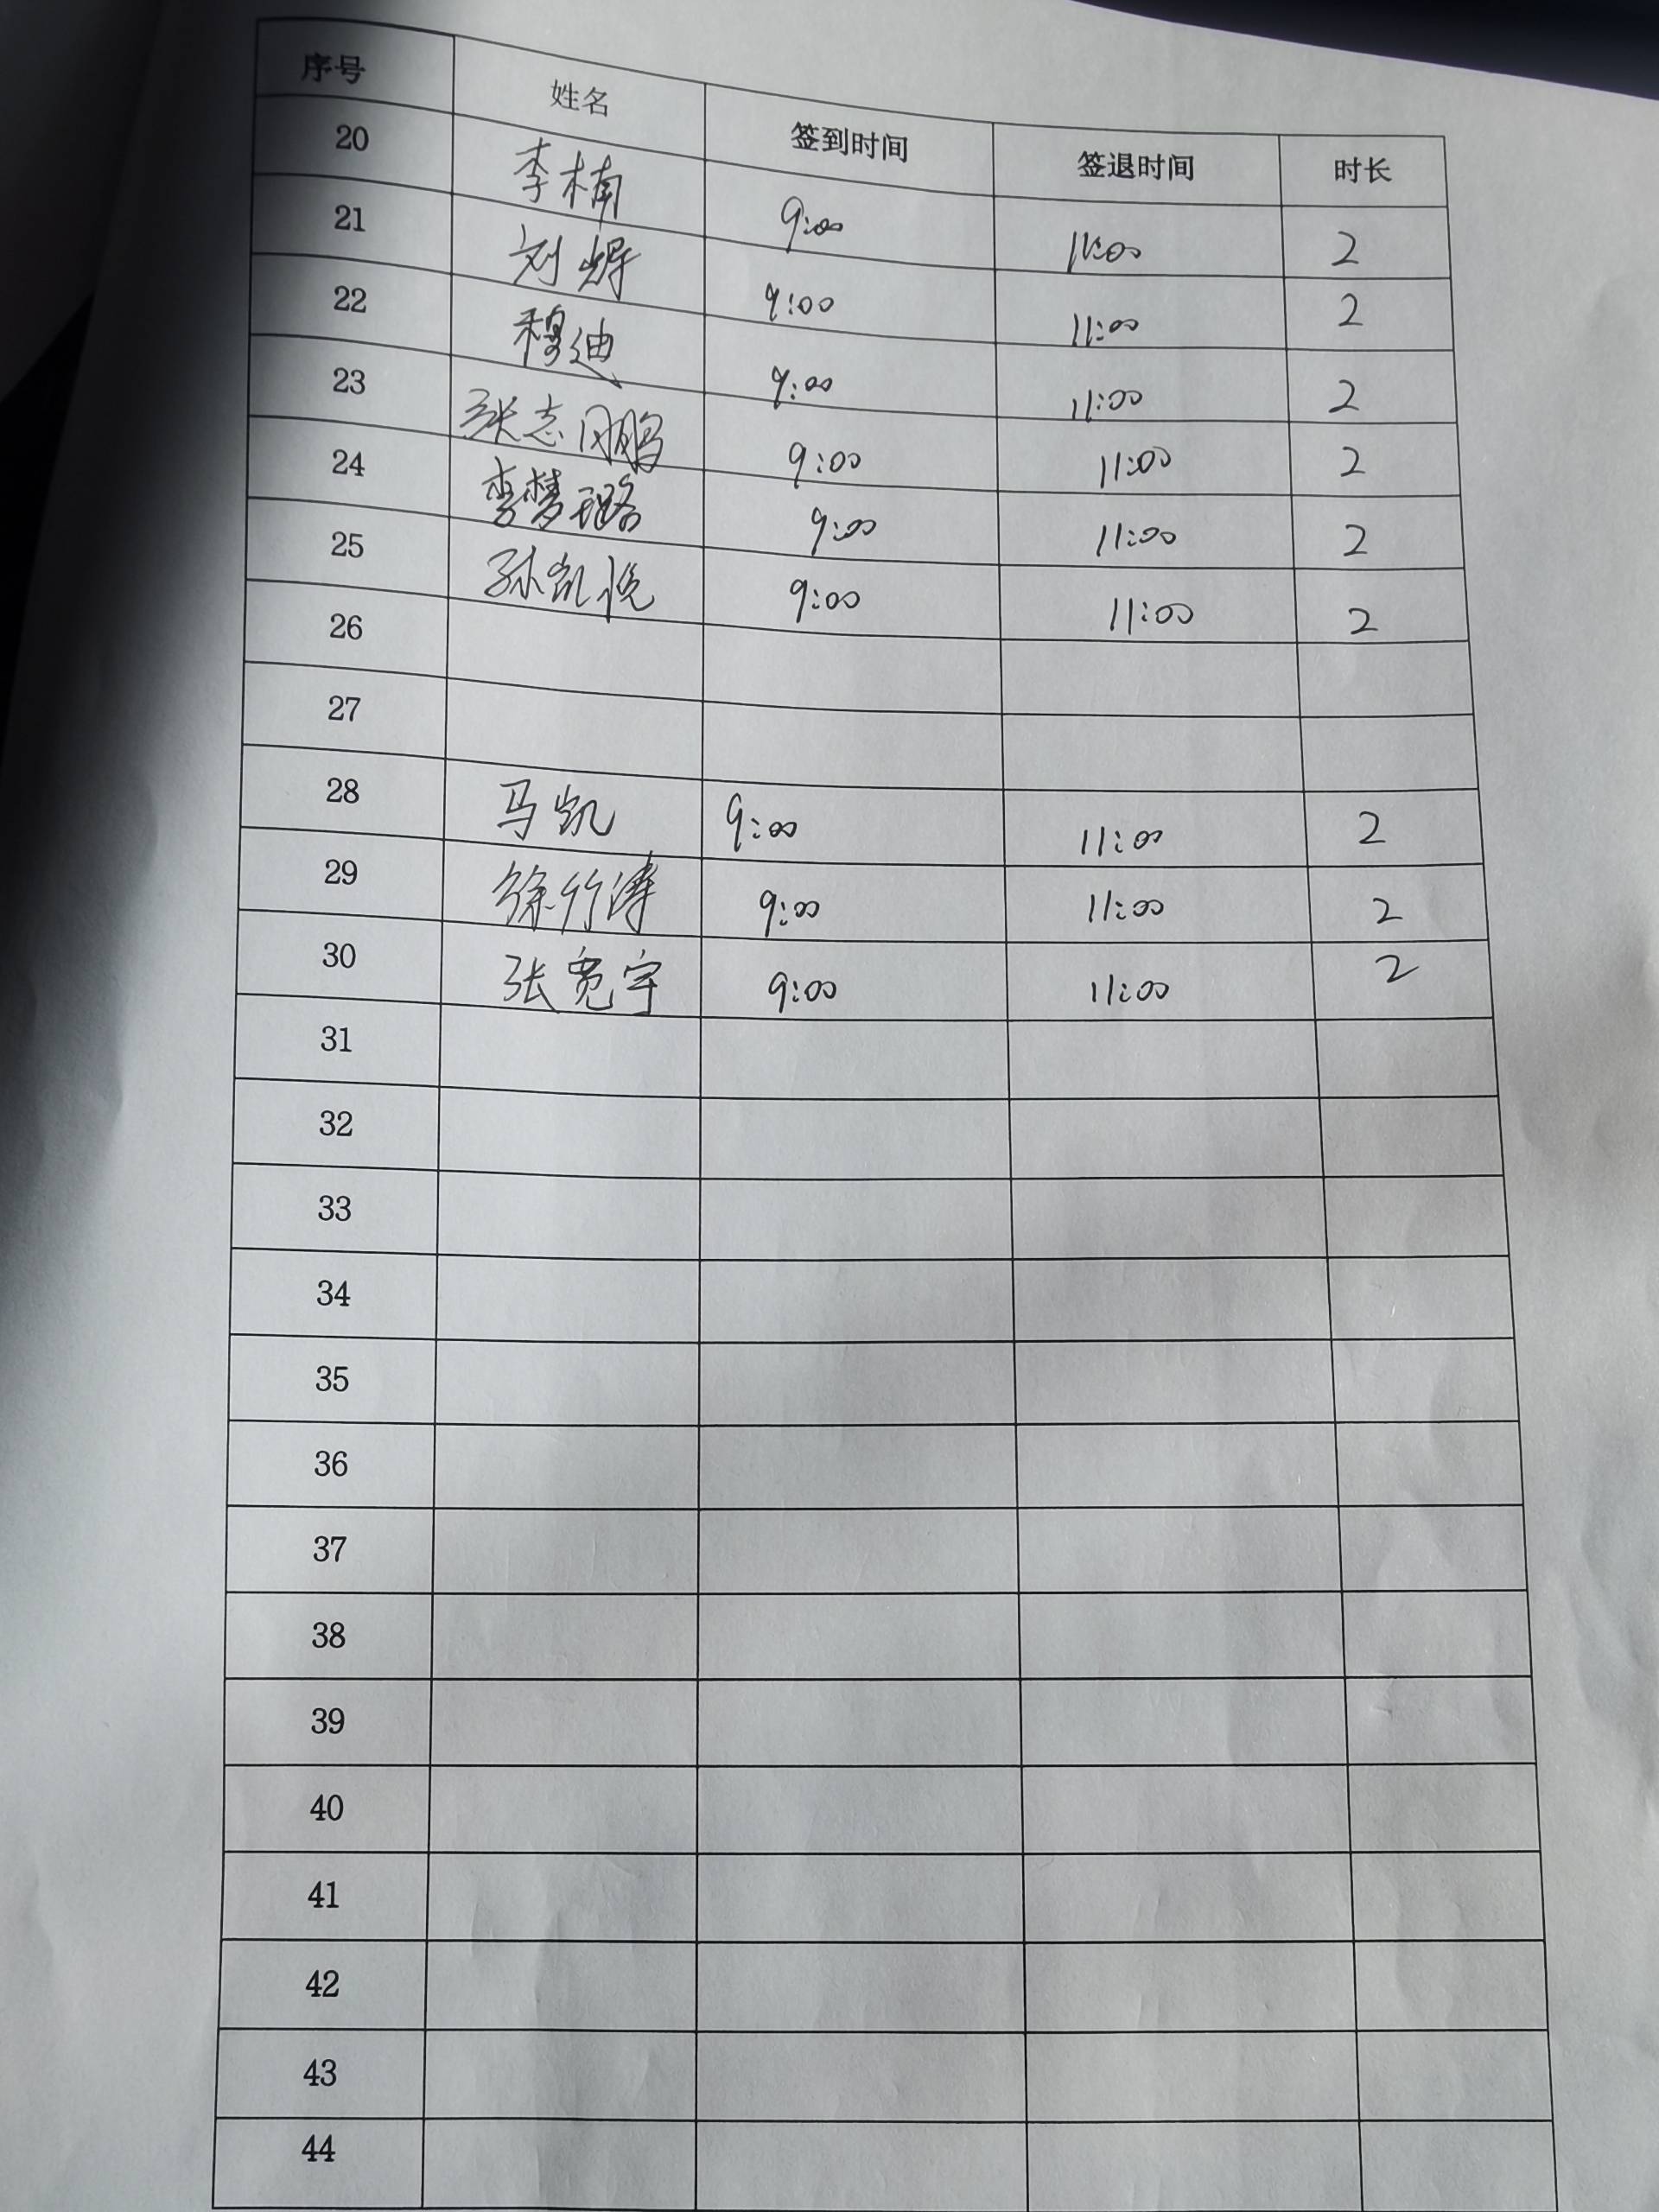 序号 姓名 签到时间 签退时间 时长
20 李楠 9:00 11:00 2
21 刘 9:00 11:00 2
22 穆迪 9:00 11:00 2
23 张志鹏 9:00 11:00 2
24 李梦璐 9:00 11:00 2
25 孙凯悦 9:00 11:00 2
26
27
28 马凯 9:00 11:00 2
29 徐竹涛 9:00 11:00 2
30 张宽宇 9:00 11:00 2
31
32
33
34
35
36
37
38
39
40
41
42
43
44